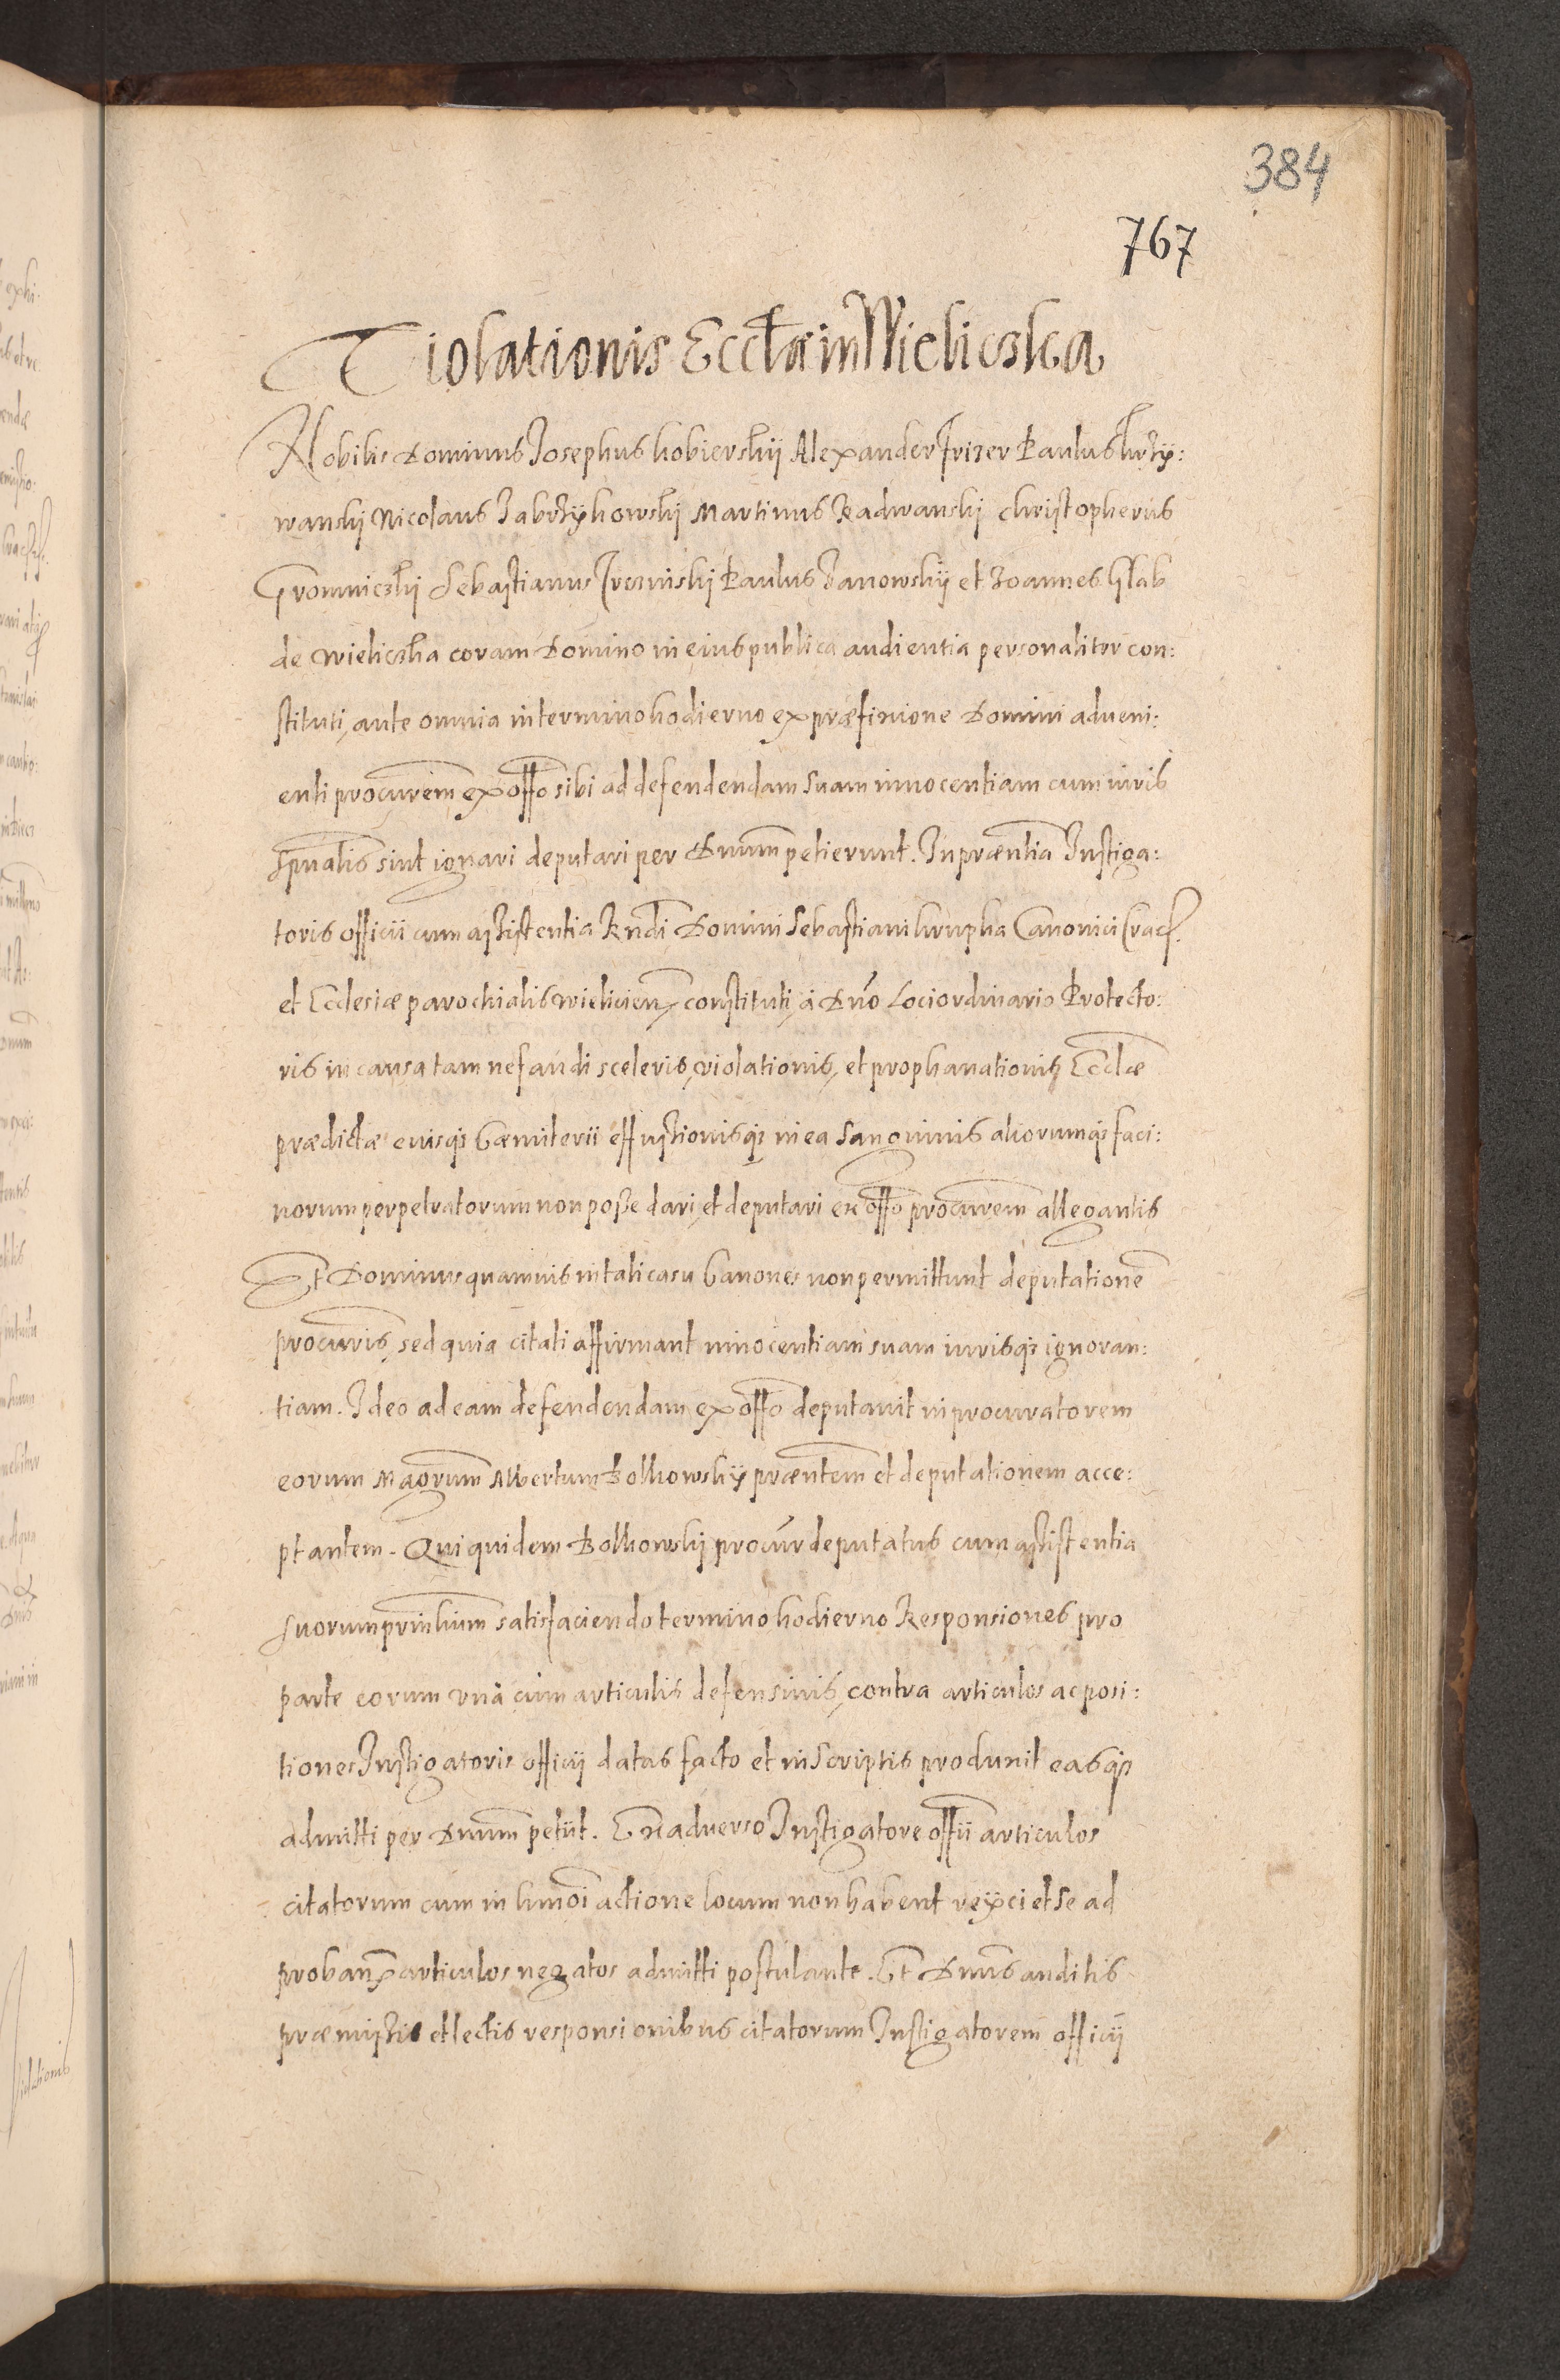 384
767
Violationis Eccłæ in Wieliczka
Nobilis Dominus Josephus kobierskij Alexander Paulus krzy:
wanskij Nicolaus Martinus Radwanskij Christopherus
Gromniczkij Sebastianus Paulus Janowskij et Joannes Głab
de Wieliczka coram Domino in eius publica audientia personaliter con:
stituti, ante omnia in termino hodierno ex præfinione Domini adueni:
enti procurem ex offo sibi ad defendendam suam innocentiam cum iuris
spualis sint ignari deputari per Dnum petierunt. In præntia Instiga:
toris officii cum assistentia Rndi Domini Sebastiani krupka Canonici Crac
et Ecclesiæ parochialis Wielicien constituti, á Dno Loci ordinario Protecto:
ris in causa tam nefandi sceleris, violationis, et prophanationis Eccłæ
prædictæ eiusq; Cæmiterii effusionisq; in ea sanguinis aliorumq; faci:
norum perpetratorum non posse dari, et deputari ex offo procurem allegantis
Et Dominus quamuis in tali casu Canones non permittunt deputatione
procuris, sed quia citati affirmant innocentiam suam iurisq; ignoran:
tiam. Ideo ad eam defendendam ex offo deputauit in procuratorem
eorum Magrum Albertum Bolkowskij præntem et deputationem acce:
ptantem. Qui quidem Bolkowskij procur deputatus cum assistentia
suorum prinlium satisfaciendo termino hodierno Responsiones pro
parte eorum vná cum articulis defensiuis, contra articulos ac posi:
tiones Instigatoris officij datas facto et in scriptis produxit easq;
admitti per Dnum petiit. Ex aduerso Instigatore offii articulos
citatorum cum in hmoi actione locum non habent reijci et se ad
proban articulos negatos admitti postulante. Et Dnus auditis
præmissis et lectis responsionibus citatorum Instigatorem officij